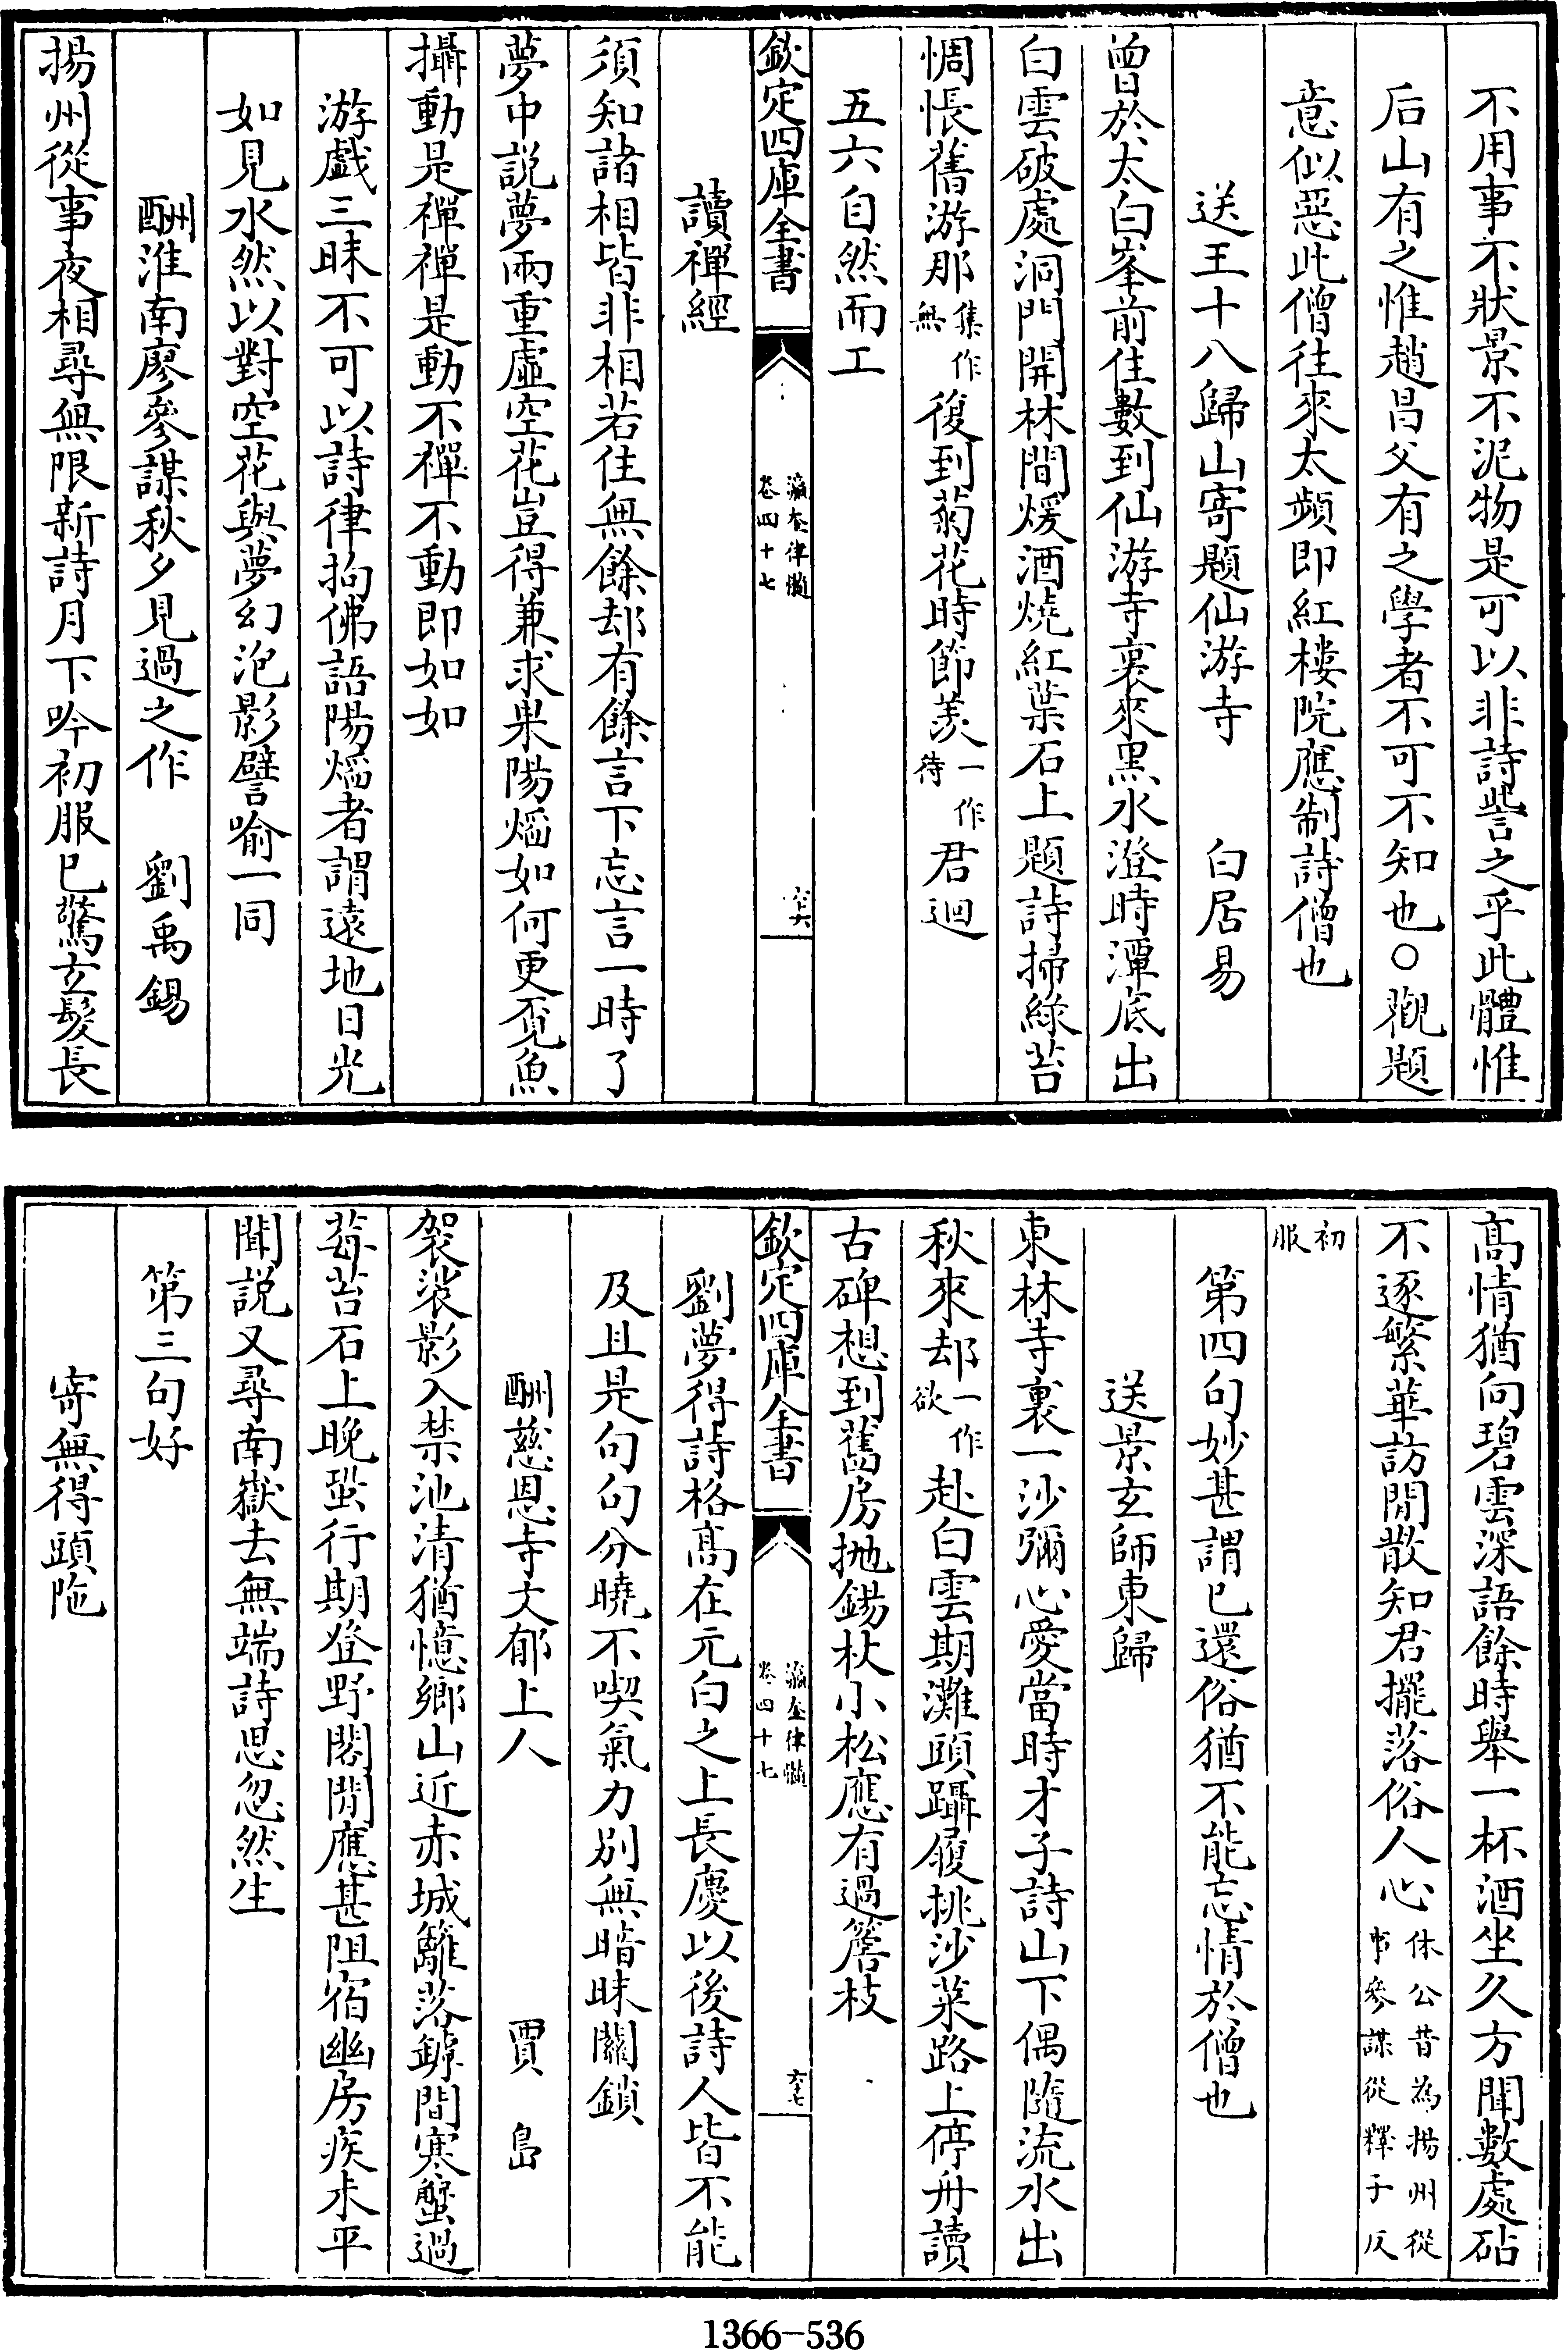 不用事不狀景不泥物是可以非詩訾之乎此體惟
后山有之惟趙昌父有之學者不可不知也○觀題
意似惡此僧往來太頻即紅樓院應制詩僧也
送王十八歸山寄題仙游寺　白居易
曽於太白峯前住數到仙游寺裏來黒水澄時潭底出
白雲破處洞門開林間煖酒燒紅葉石上題詩掃綠苔
惆悵舊游那集作無復到菊花時節羨一作待君迴
五六自然而工
欽定四庫全書
瀛奎律髓
卷四十七
六十六
讀禪經
須知諸相皆非相若住無餘却有餘言下忘言一時了
夢中說夢兩重虛空花豈得兼求果陽熖如何更覓魚
攝動是禪禪是動不禪不動即如如
游戲三昧不可以詩律拘佛語陽熖者謂遠地日光
如見水然以對空花與夢幻泡影譬喻一同
酬淮南廖參謀秋夕見過之作　劉禹錫
揚州從事夜相尋無限新詩月下吟初服已驚玄髮長
髙情猶向碧雲深語餘時舉一杯酒坐久方聞數處砧
不逐繁華訪閒散知君擺落俗人心休公昔為揚州從事參謀從釋子反
初服
第四句妙甚謂已還俗猶不能忘情於僧也
送景玄師東歸
東林寺裏一沙彌心愛當時才子詩山下偶隨流水出
秋來却一作欲赴白雲期灘頭躡履挑沙菜路上停舟讀
古碑想到舊房抛錫杖小松應有過簷枝
欽定四庫全書
瀛奎律髓
卷四十七
六十七
劉夢得詩格髙在元白之上長慶以後詩人皆不能
及且是句句分曉不喫氣力別無暗昧關鎖
酬慈恩寺文郁上人　賈島
袈裟影入禁池清猶憶鄉山近赤城籬落罅間寒蟹過
莓苔石上晚蛩行期登野閣閒應甚阻宿幽房疾未平
聞說又尋南嶽去無端詩思忽然生
第三句好
寄無得頭陁
1366-536